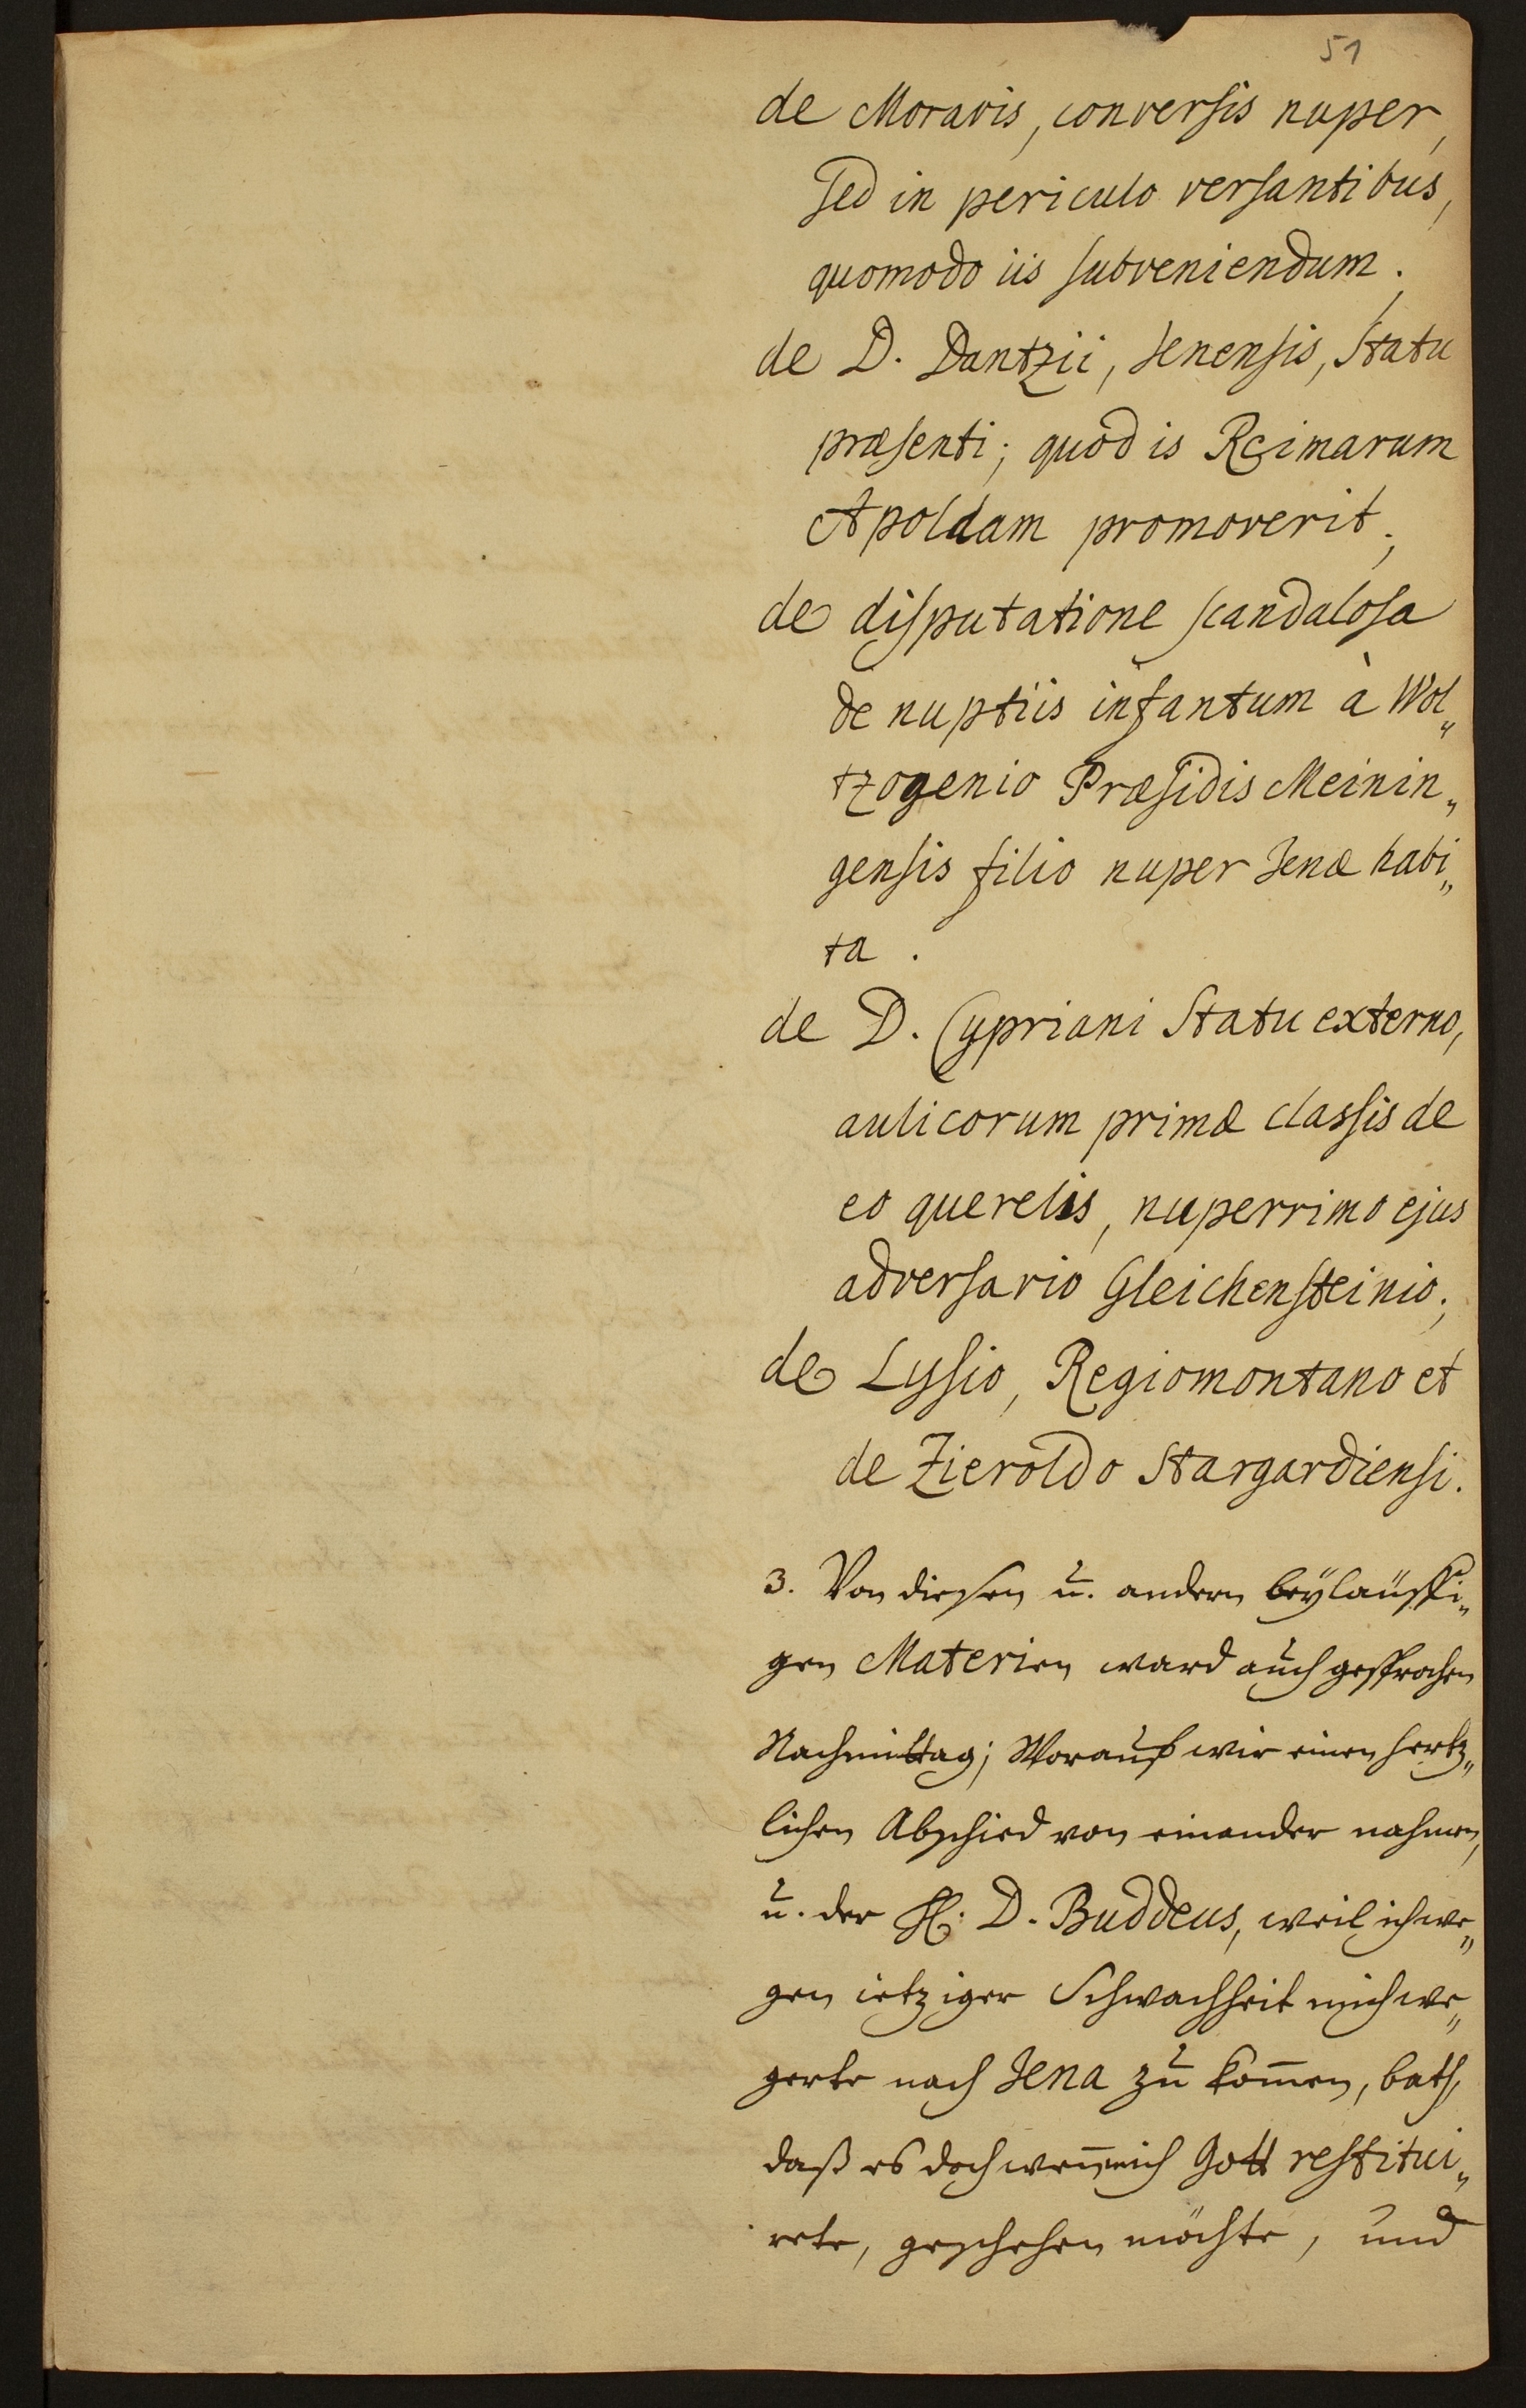 51
de Moravis, conversis nuper,
sed in periculo versantibus,
quomodo iis subveniendum.
de D. Dantzii, Jenensis, Statu
præsenti; quod is Reimarum
Apoldam promoverit;
de disputatione scandalosa
de nuptiis infantum à Wol„
tzogenio Præsidis Meinin„
gensis filio nuper Jenæ habi„
ta.
de D. Cypriani Statu externo,
aulicorum primæ classis de
eo querelis, nuperrimo ejus
adversario Gleichensteinio;
de Lysio, Regiomontano et
de Zieroldo Stargardiensi.
3. Von diesen u. andern beyläuffi„
gen Materien ward auch gesprochen
Nachmittag; Worauf wir einen hertz„
lichen Abschied von einander nahmen,
u. der H. D. Buddeus, weil ich we„
gen ietziger Schwachheit mich we„
gerte nach Jena zu kom̄en, bath,
daß es doch wen̄ mich Gott restitui„
rete, geschehen möchte, und